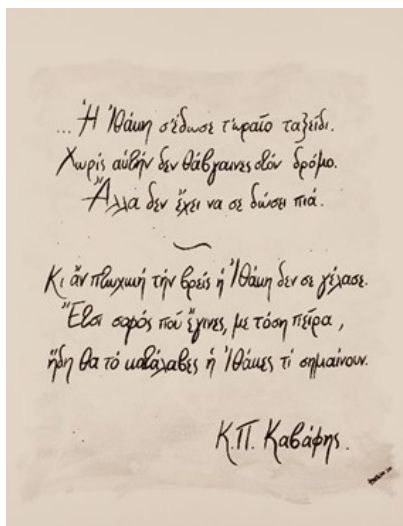 ... Ἡ Ἰθάκη σ' ἔδωσε τ' ὡραῖο ταξείδι.
Χωρίς αὐτήν δεν θἄβγαινες στόν δρόμο.
Ἄλλα δεν ἔχει να σε δώσει πιά.
Κι ἄν πτωχική τήν βρεῖς ἡ Ἰθάκη δεν σε γέλασε.
Ἔτσι σοφός πού ἔγινες, με τόση πεῖρα,
ἤδη θα τό κατάλαβες ἡ Ἰθάκες τί σημαίνουν.
Κ.Π. Καβάφης.